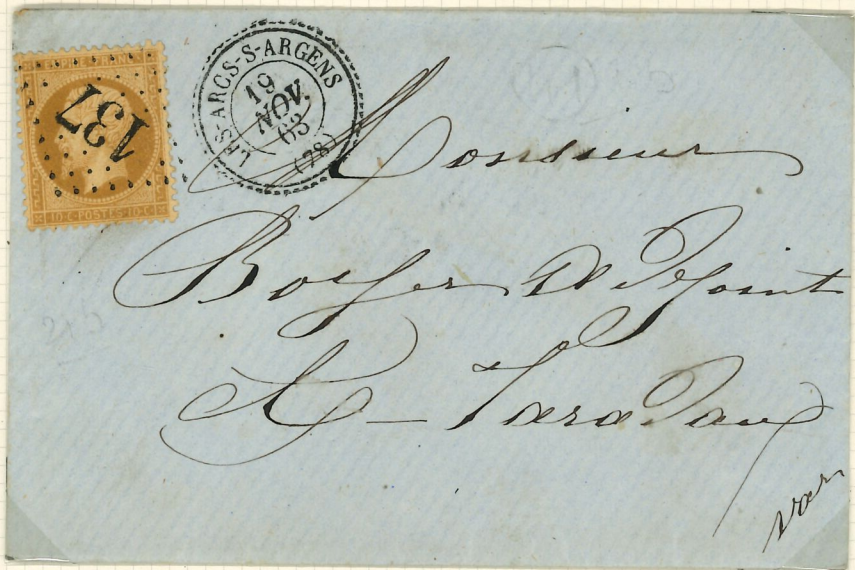 137
10 C POSTES 10 C
LES-ARCS-S-ARGENS
19
NOV.
63
(78)
Monsieur
Boyer adjoint
A - Taradau
Var